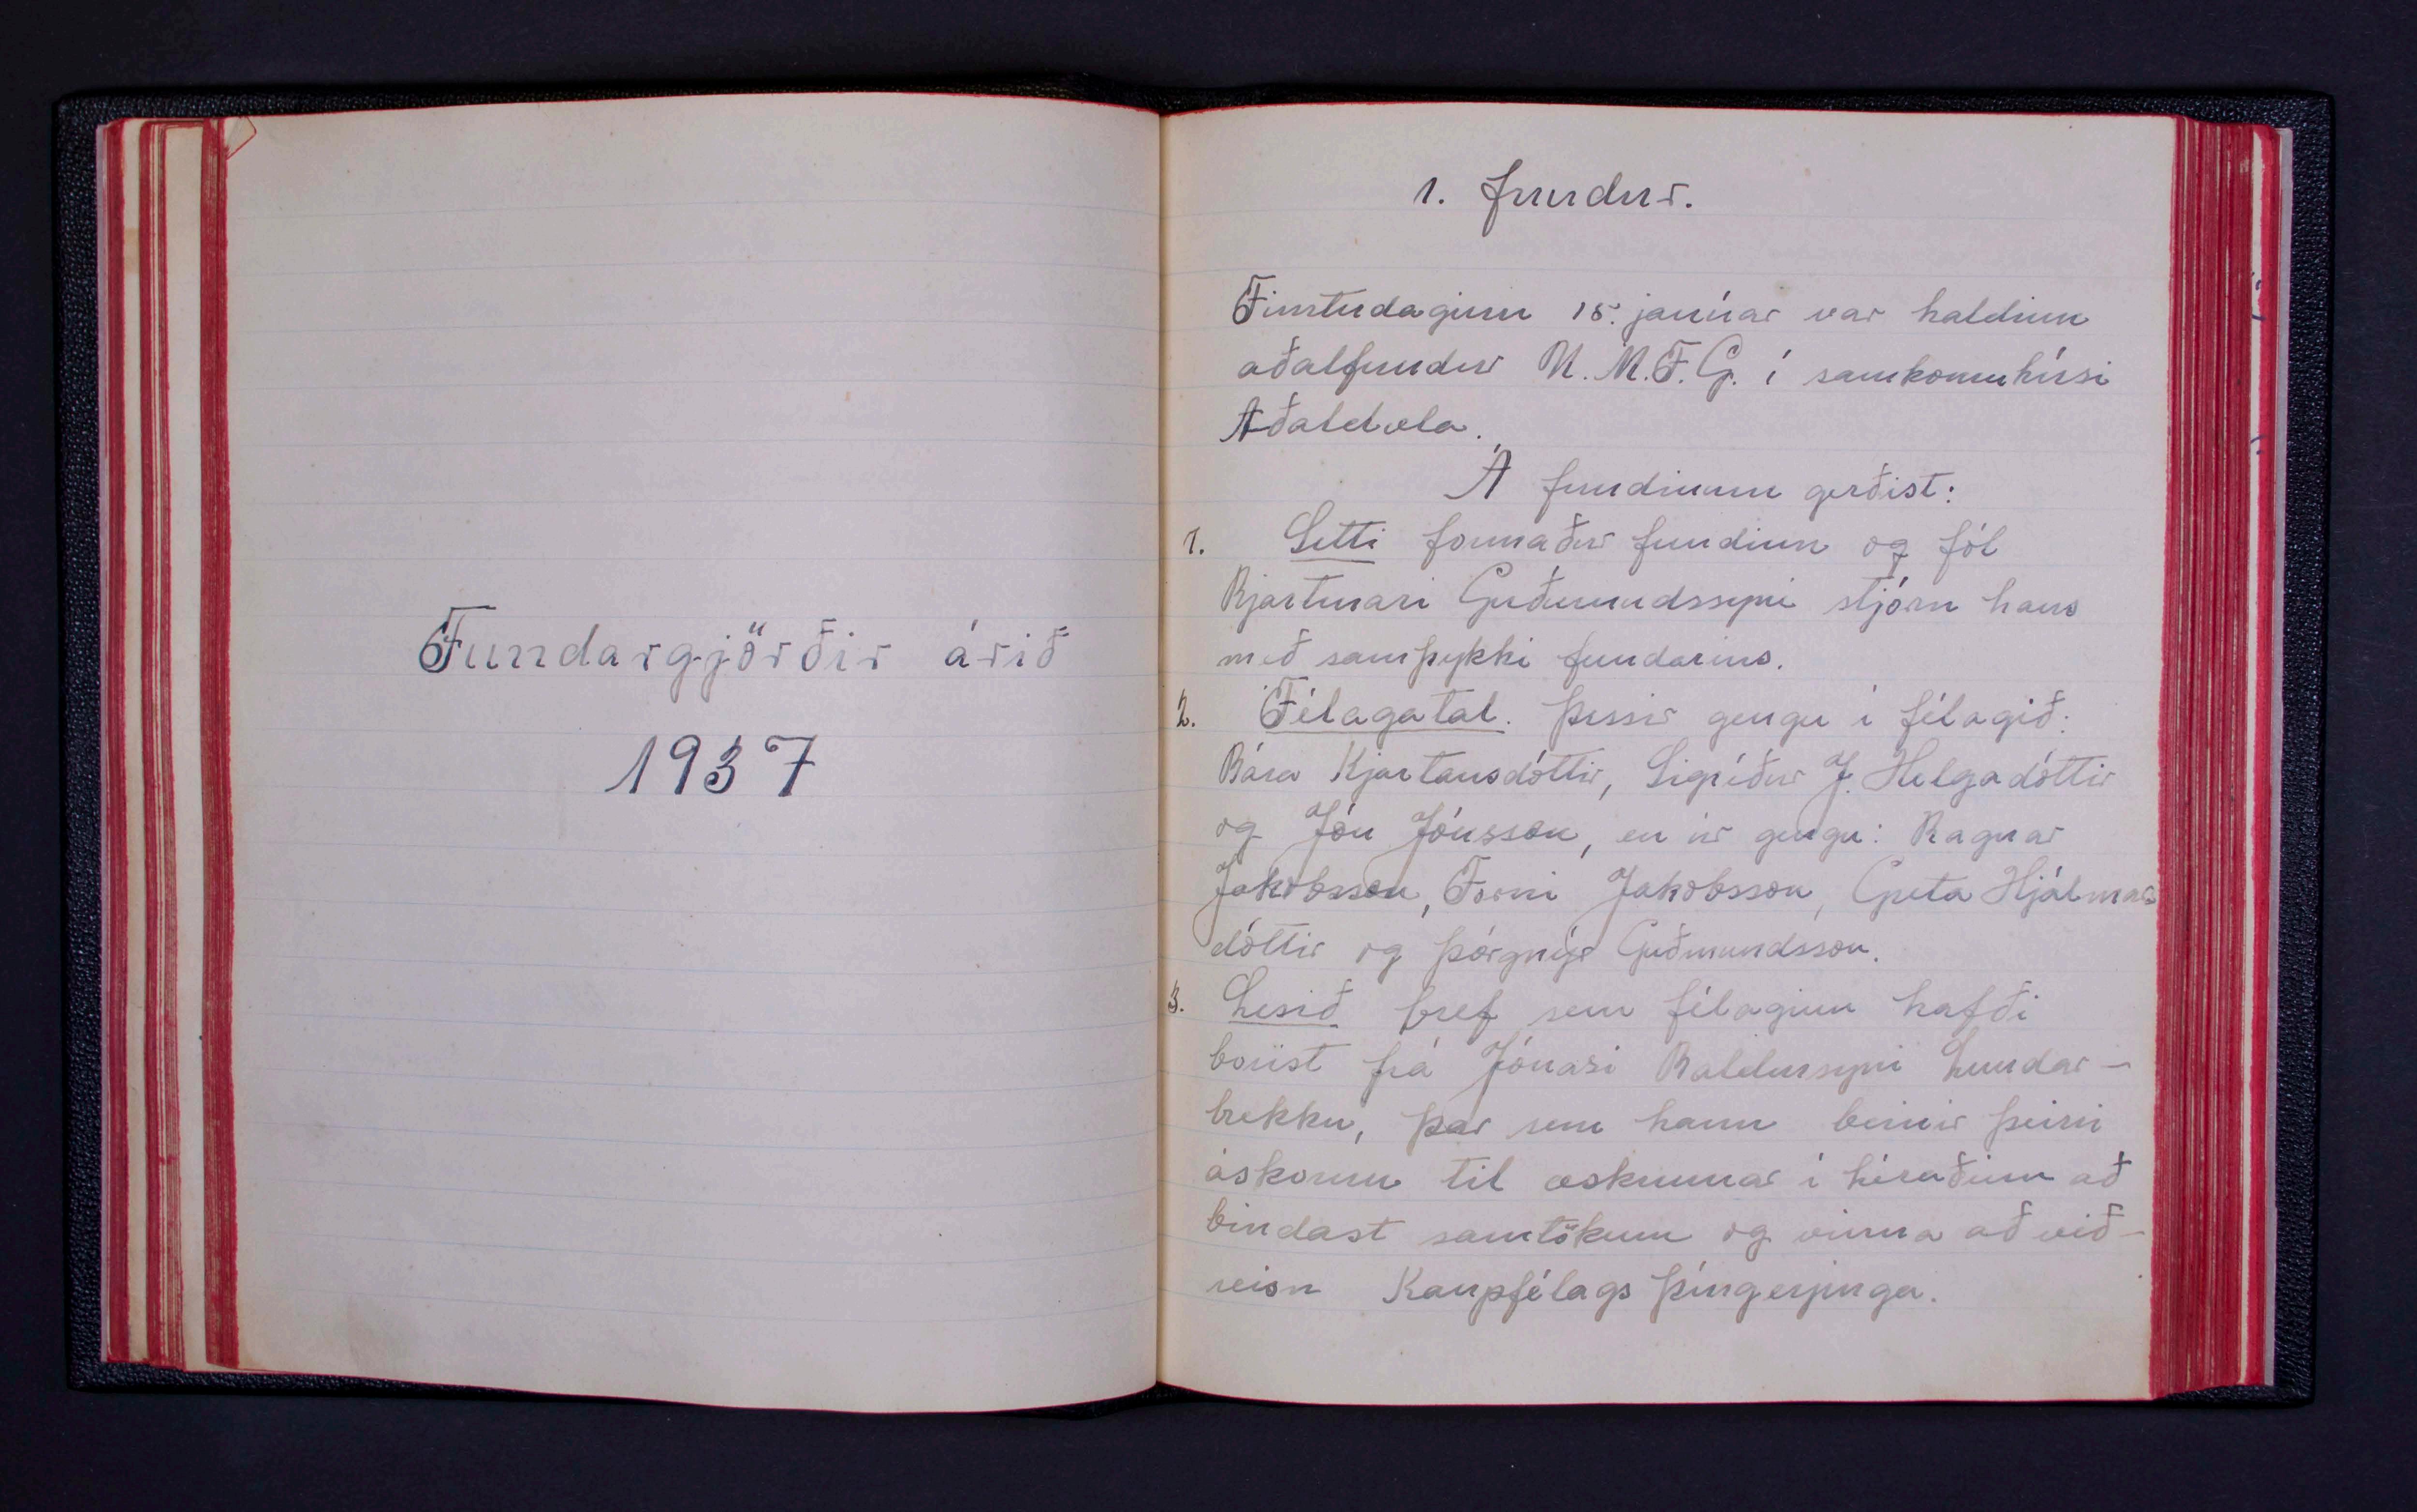 Fundargjörðir árið
1937
1. fundur.
Fimtudaginn 15. janúar var haldinn
aðalfundur U.M.F.G. í samkomuhúsi
Aðaldæla.
Á fundinum gerðist:
1. Setti formaður fundinn og fól
Bjartmari Guðmundssyni stjórn hans
með samþykki fundarins.
2. Félagatal. Þessir gengu í félagið:
Bára Kjartansdóttir, Sigríður J. Helgadóttir
og Jón Jónsson, en úr gengu: Ragnar
Jakobsson, Forni Jakobsson, Greta Hjálmars
dóttir og Þórgnýr Guðmundsson.
3. Lesið bref sem félaginu hafði
borist frá Jónasi Baldurssyni Lundar-
brekku, þar sem hann beinir þeirri
áskorun til æskunnar í héraðinu að
bindast samtökum og vinna að við-
reisn Kaupfélags Þingeyinga.